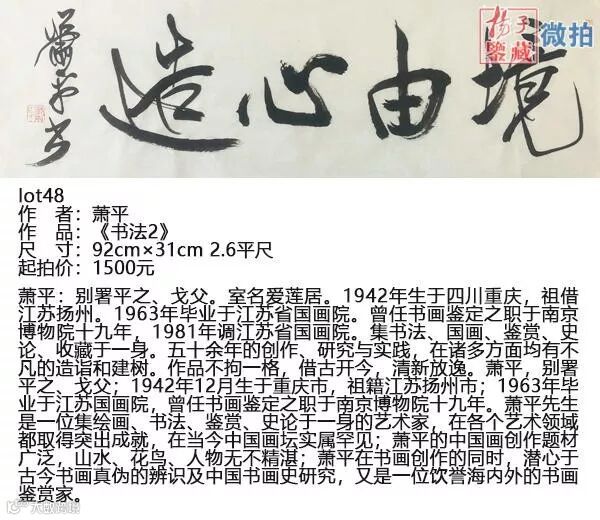 境由心造
萧平书
扬子
鉴藏
微拍
lot48
作　者：萧平
作　品：《书法2》
尺　寸：92cm×31cm 2.6平尺
起拍价：1500元
萧平：别署平之、戈父。室名爱莲居。1942年生于四川重庆，祖借
江苏扬州。1963年毕业于江苏省国画院。曾任书画鉴定之职于南京
博物院十九年，1981年调江苏省国画院。集书法、国画、鉴赏、史
论、收藏于一身。五十余年的创作、研究与实践，在诸多方面均有不
凡的造诣和建树。作品不拘一格，借古开今，清新放逸。萧平，别署
平之、戈父；1942年12月生于重庆市，祖籍江苏扬州市；1963年毕
业于江苏国画院，曾任书画鉴定之职于南京博物院十九年。萧平先生
是一位集绘画、书法、鉴赏、史论于一身的艺术家，在各个艺术领域
都取得突出成就，在当今中国画坛实属罕见；萧平的中国画创作题材
广泛，山水、花鸟、人物无不精湛；萧平在书画创作的同时，潜心于
古今书画真伪的辨识及中国书画史研究，又是一位饮誉海内外的书画
鉴赏家。